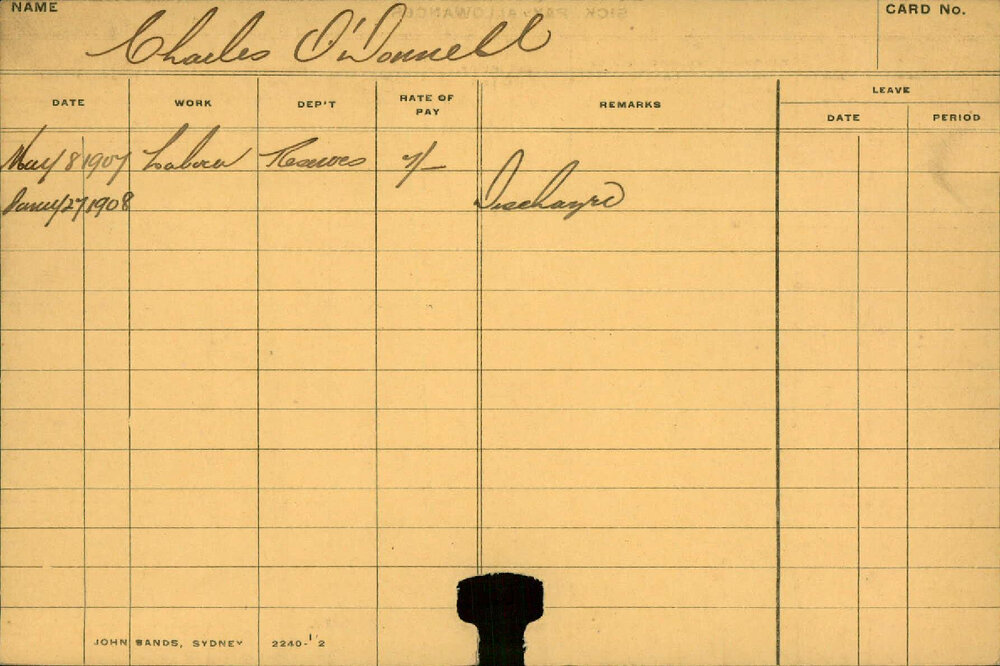 NAME
CARD No.
Charles O'Donnell
DATE WORK DEP'T RATE OF PAY REMARKS LEAVE
DATE PERIOD
May 8 1907 Laborer Reserves 7/-
Jany 27 1908 Discharged
JOHN SANDS, SYDNEY 2240-1'2